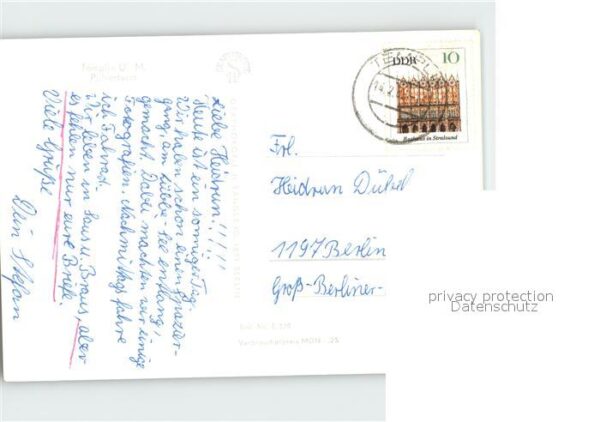 Templin U. M.
DDR
10
TEMPLIN
Rathaus in Stralsund
Liebe Heidrun!!!!!
Heute ist ein sonniger Tag.
Wir haben schon einen Spazier-
gang am Lübbe-See entlang,
gemacht. Dabei machten wir einige
Fotografien. Nachmittag fahre
ich Fahrrad.
Wir leben in Saus u. Braus, aber
es fehlen nur eure Briefe.
Viele Grüße
Dein Stefan
Frl.
Heidrun Dübel
1197 Berlin
Groß-Berliner-
Verbraucherpreis MDN -,25
privacy protection
Datenschutz